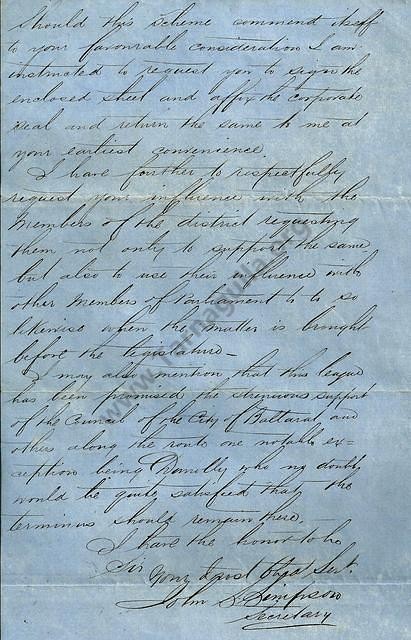 Should this Scheme commend itself
to your favourable consideration I am
instructed to request you to sign the
enclosed sheet and affix the Corporate
Seal and return the same to me at
your earliest convenience.
I have further to respectfully
request your influence with the
Members of the district requesting
them not only to support the same
but also to use their influence with
other Members of Parliament to do so
likewise when the matter is brought
before the legislature –
I may also mention that this league
has been promised the strenuous support
of the Council of the City of Ballarat and
others along the route one notable ex=
ception being Dunolly who no doubt
would be quite satisfied that the
terminus should remain there.
I have the honor to be
Sir
Your Obed Servt.
John S Simpson
Secretary